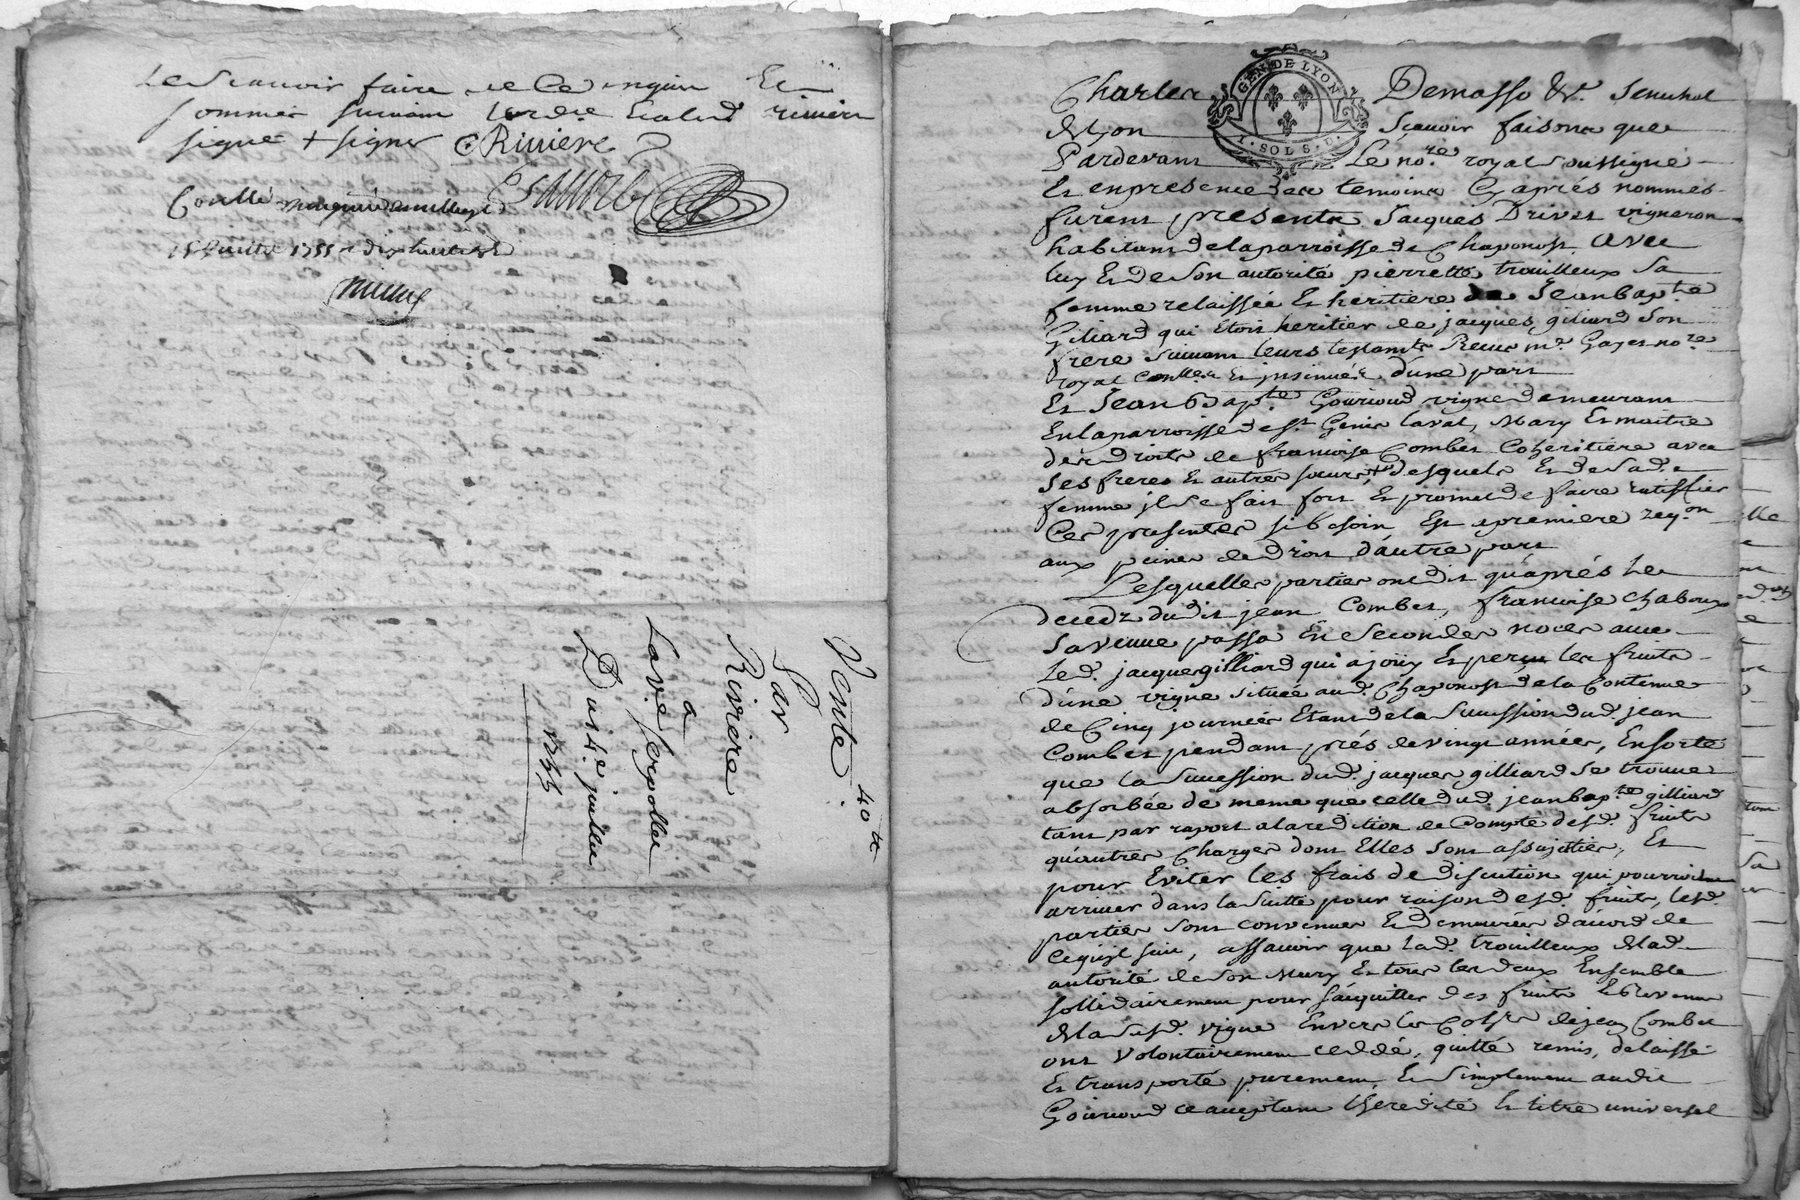 Le Scavoir faire de ce enquis Et
sommés suivant Riviere
signé + signer CRiviere
15 Juillet 1755
Vente 40 tt
Par
Riviere
a
Laverserpollieu
Du 14e juillet
1755
Charles Demasso &r. Senechal
GEN DE LYON
1 · SOL 8 · D
de Lyon Scavoir faisons que
Pardevant Le nore. royal soussigné
Et en presence des temoins cy aprés nommes
furent presents Jacques Drivet vigneron
habitant de la parroisse de Chaponost avec
luy Et de Son autorité pierrette trouilleux Sa
femme relaissée Et heritiere de Jean bapte
Giliard qui Etoit heritier de jacques giliard Son
frere Suivant leurs testamts Recus mr. Gayet nore
royal Conllés Et jnsinués, d'une part
Et Jean Bapte Gourioud vigneron demeurant
En la parroisse de st. Genis laval, Mary Et maitre
des droits de francoise Combet Coheritiere avec
Ses freres Et autres soeurs, desquels Et de Sade
femme jl Se fait fort Et promet de faire ratiffier
Ces presentes si besoin Est a premiere reqon
aux peines de droit d'autre part
Lesquelles parties ont dit qu'aprés Le
decedz dudit jean Combet, francoise Chaboux
Sa veuve passa En Secondes noces avec
Led. jacques gilliard qui a joüy Et perçu les fruits
d'une vigne située aud. Chaponost de la Contenue
de Cinq journées Etant de la Succession dud. jean
Combet pendant prés de vingt années, En sorte
que la Succession dud. jacques gilliard Se trouve
absorbée de meme que celle dud. jean bapte gilliard
tant par raport a la redition de Compte desd. fruits
qu'autres Charges dont Elles sont assujeties, Et
pour Eviter les frais de discution qui pourroient
arriver dans la Suitte pour raison desd. fruits, lesd.
parties Sont convenues Et demeurées d'accord de
Ce qui suit, assavoir que lad. trouilleux de lad.
autorité de Son Mary Et tous les deux Ensemble
sollidairement pour s'acquitter des fruits Et Revenus
de la susd. vigne Envers les Cohers de jean Combet
ont Volontairement ceddé, quitté remis, delaissé
Et transporté purement Et Simplement audit
Gourioud ce acceptant L'heredité Et titre universel